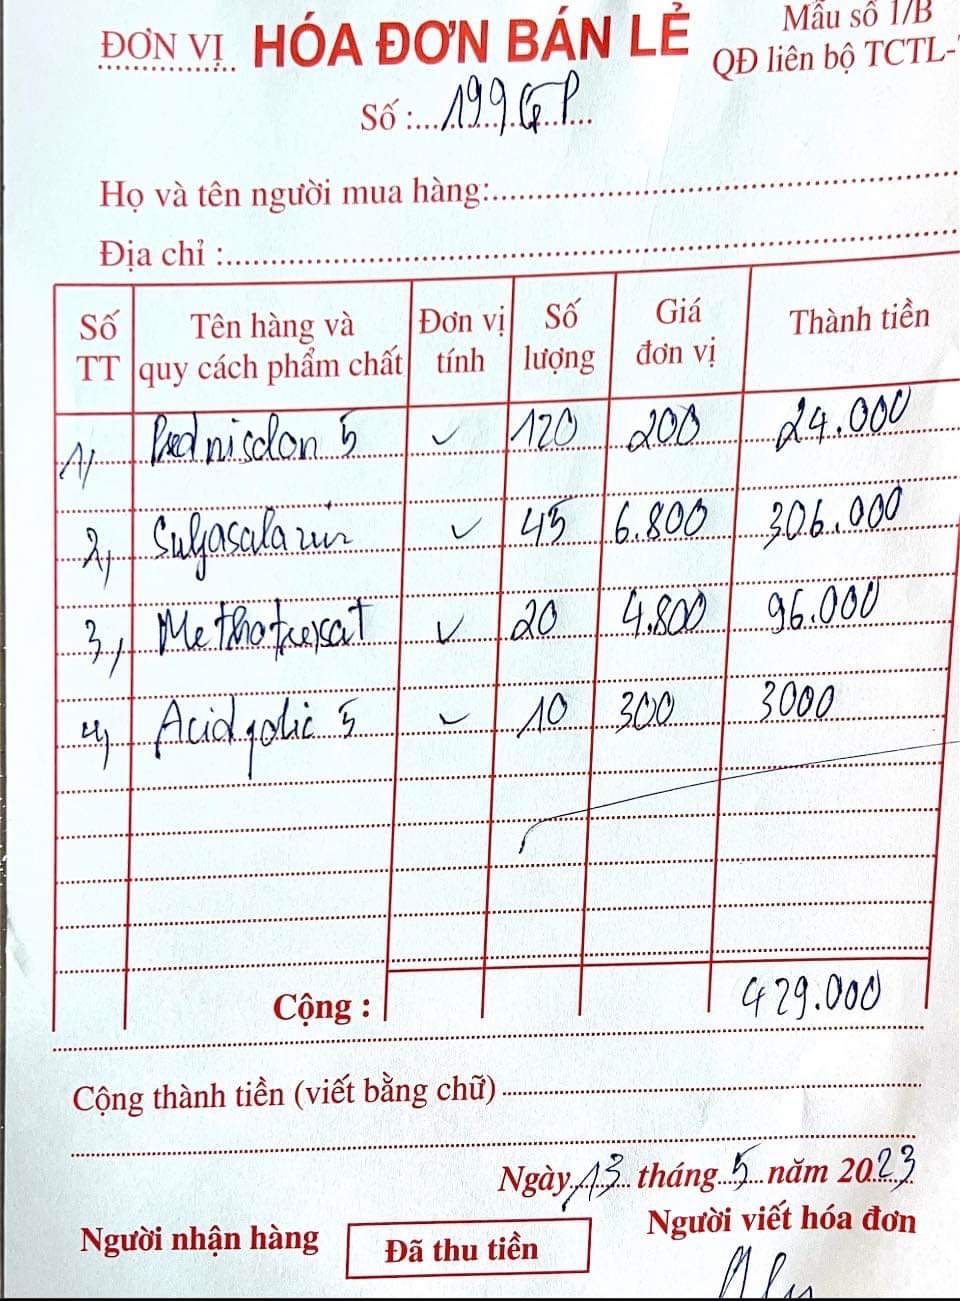 ĐƠN VỊ HÓA ĐƠN BÁN LẺ Mẫu số 1/B
QĐ liên bộ TCTL-
Số : 199GP
Họ và tên người mua hàng:
Địa chỉ :
Số TT Tên hàng và quy cách phẩm chất Đơn vị tính Số lượng Giá đơn vị Thành tiền
1, Prednisolon 5 ✓ 120 200 24.000
2, Sulfasalazin ✓ 45 6.800 306.000
3, Methotrexat ✓ 20 4.800 96.000
4, Acid folic 5 ✓ 10 300 3000
Cộng : 429.000
Cộng thành tiền (viết bằng chữ)
Ngày 13 tháng 5 năm 2023
Người nhận hàng Đã thu tiền Người viết hóa đơn